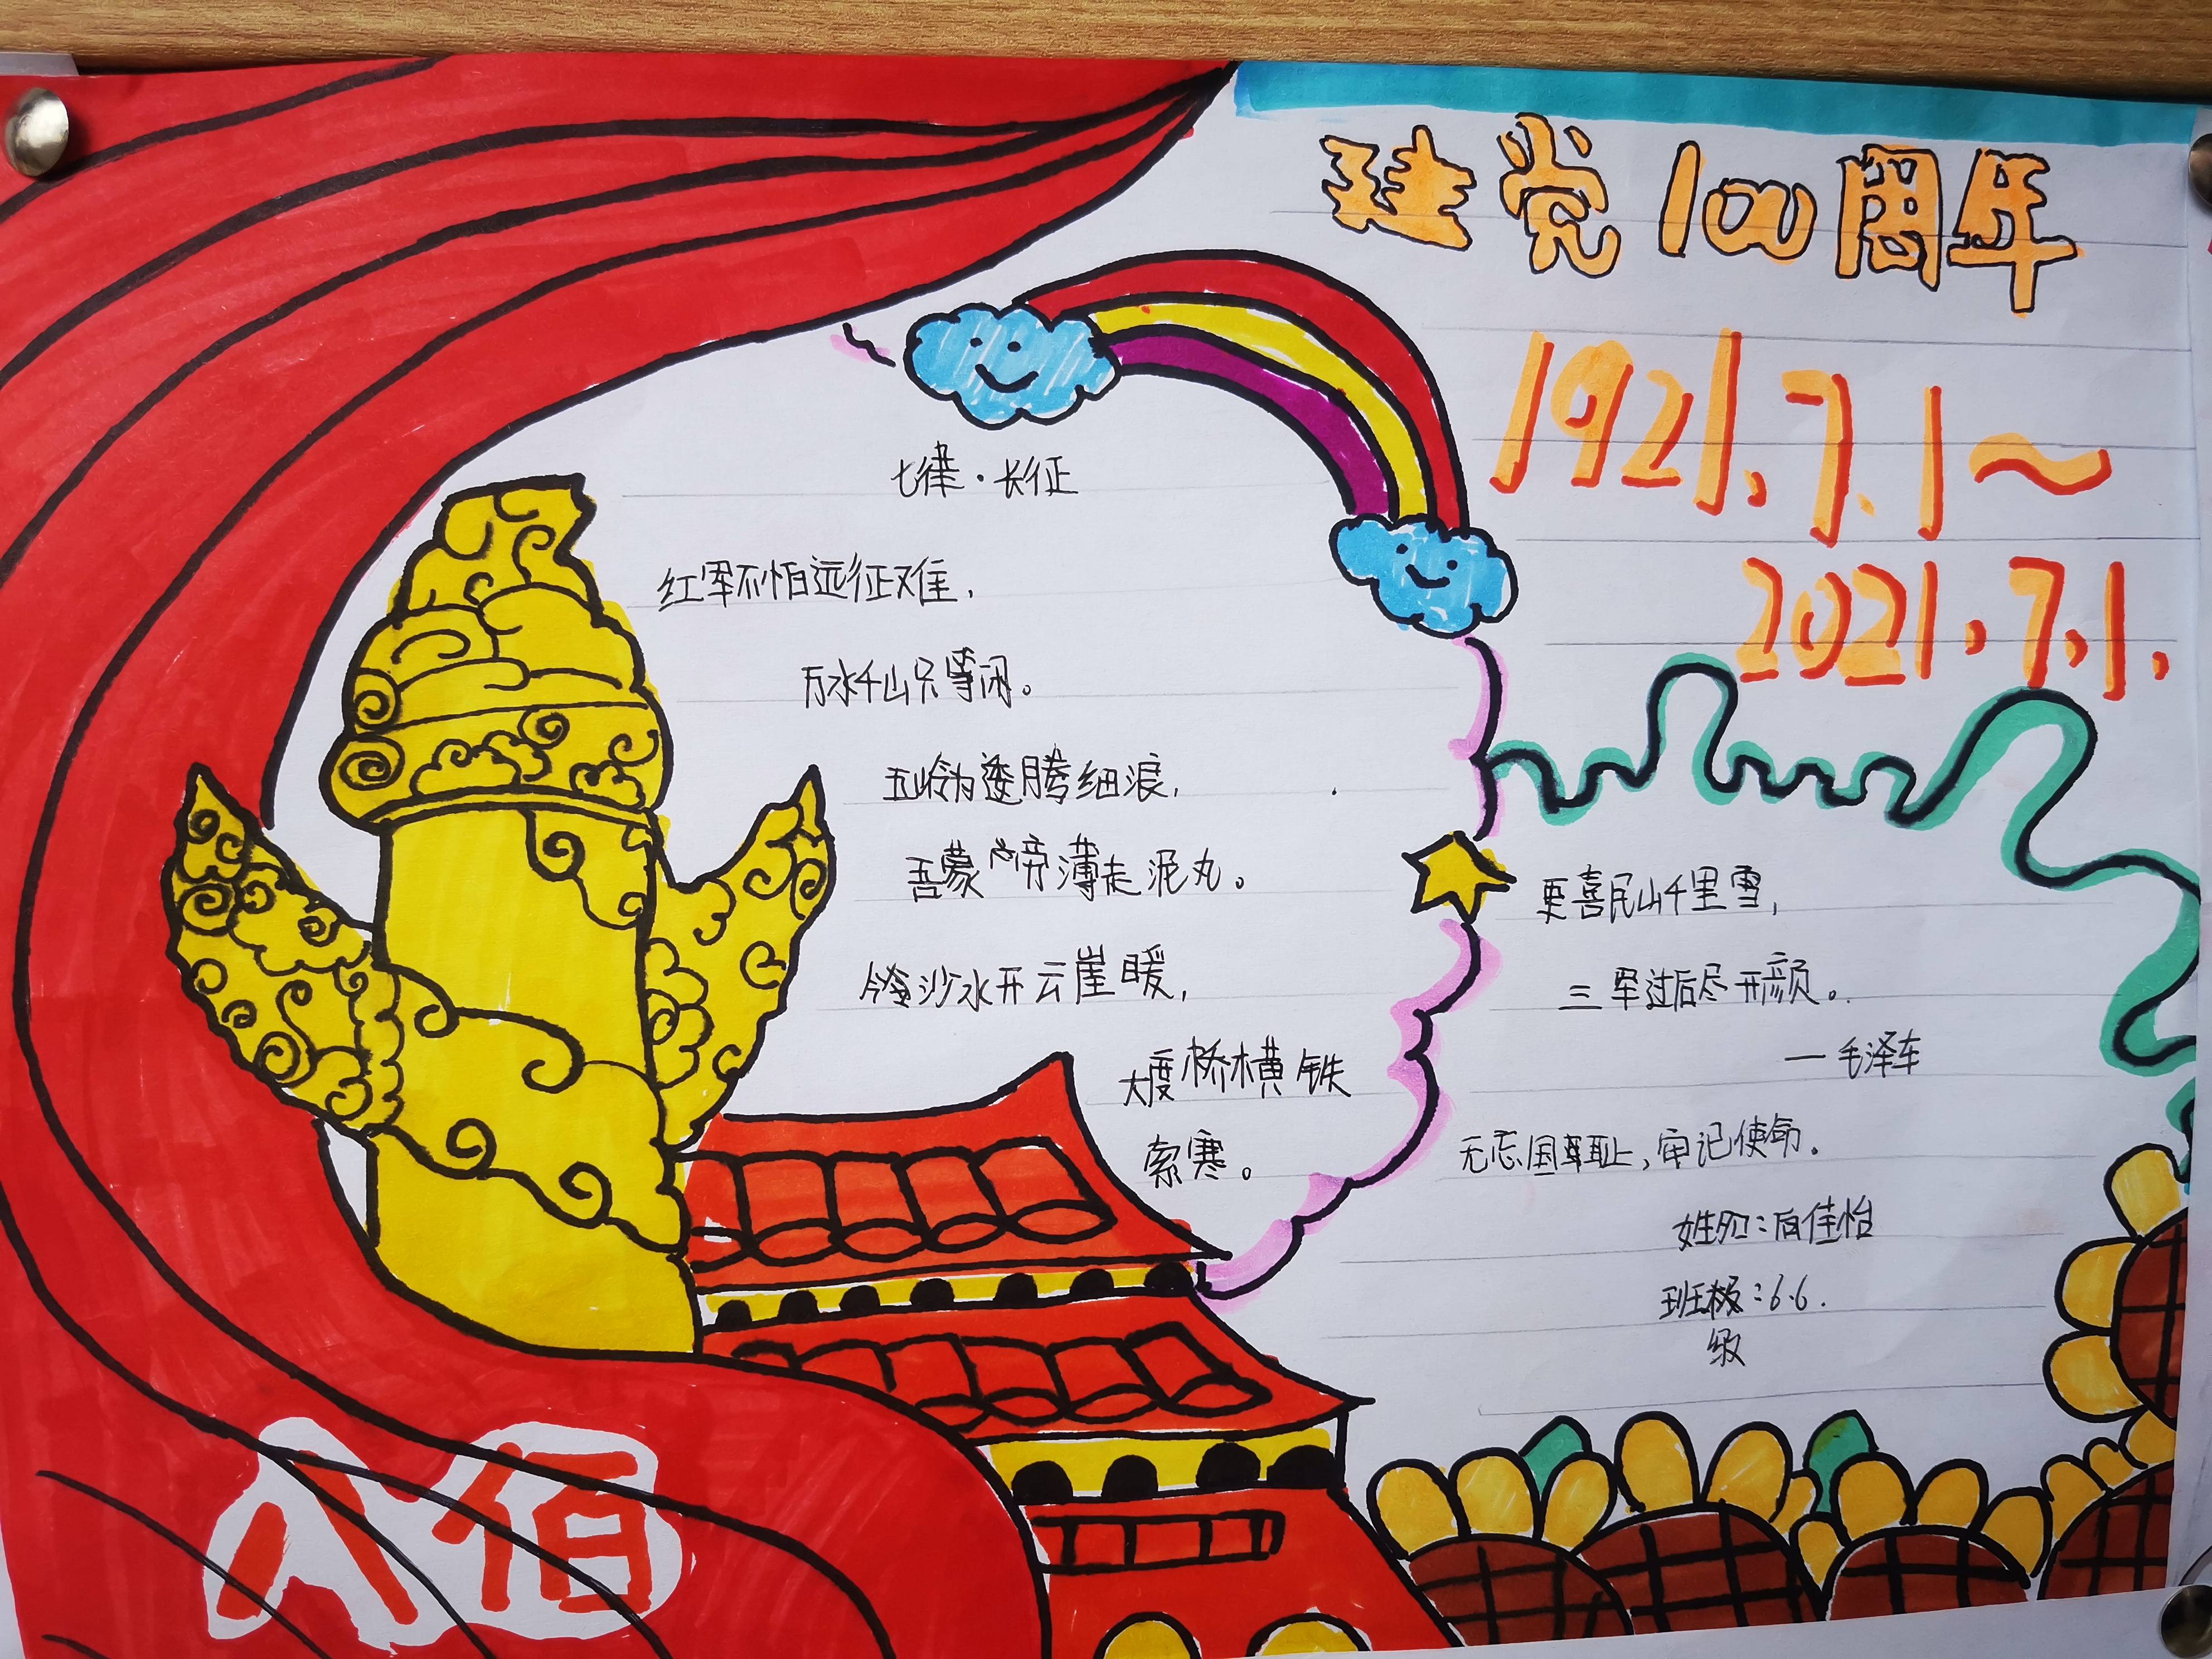 建党100周年
1921.7.1～
2021.7.1.
七律·长征
红军不怕远征难,
万水千山只等闲。
五岭逶腾细浪,
磅薄走泥丸。
沙水开云崖暖,
大度桥横铁
索寒。
更喜民山千里雪,
三军过后尽开颜。
—毛泽车
无忘国耻,牢记使命。
佳怡
班级:6.6.
级
八佰